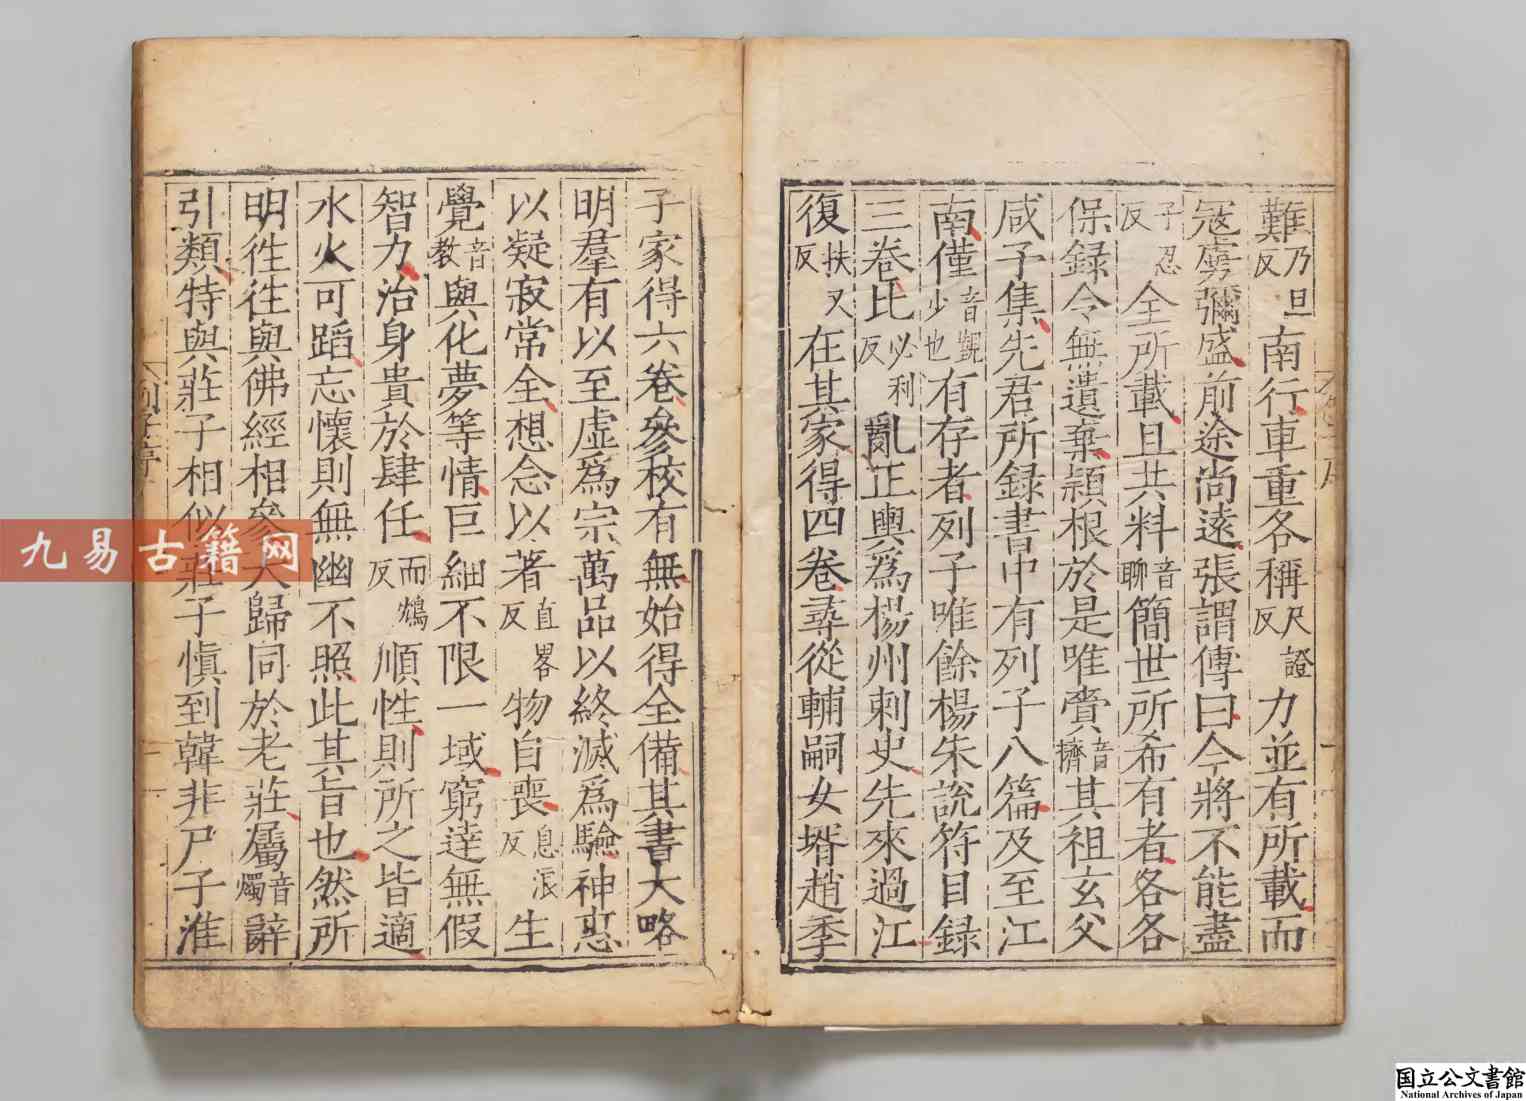 難乃旦反南行車重各稱尺證反力並有所載而
冦虜彌盛前途尚遠張謂傅曰今將不能盡
子忍反全所載且共料音聊簡世所希有者各各
保録令無遺棄穎根於是唯賫音擠其祖玄父
咸子集先君所録書中有列子八篇及至江
南僅音覲少也有存者列子唯餘楊朱說符目録
三卷比必利反亂正輿爲楊州刺史先來過江
復扶又反在其家得四卷尋從輔嗣女壻趙季
子家得六卷參校有無始得全備其書大略
明羣有以至虛爲宗萬品以終滅爲驗神惠
以凝寂常全想念以著直畧反物自喪息浪反生
覺音教與化夢等情巨細不限一域窮達無假
智力治身貴於肆任而鴆反順性則所之皆適
水火可蹈忘懷則無幽不照此其旨也然所
明徃徃與佛經相參大歸同於老莊屬音燭辭
引類特與莊子相似莊子慎到韓非尸子淮
列子序
九易古籍网
国立公文書館
National Archives of Japan